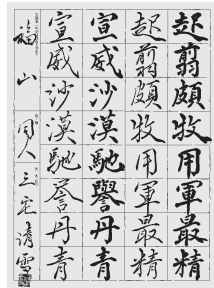 起翦頗牧用軍最精
起翦頗牧用軍最精
宣威沙漠馳譽丹青
宣威沙漠馳譽丹青
福山 同人 三宅清雪